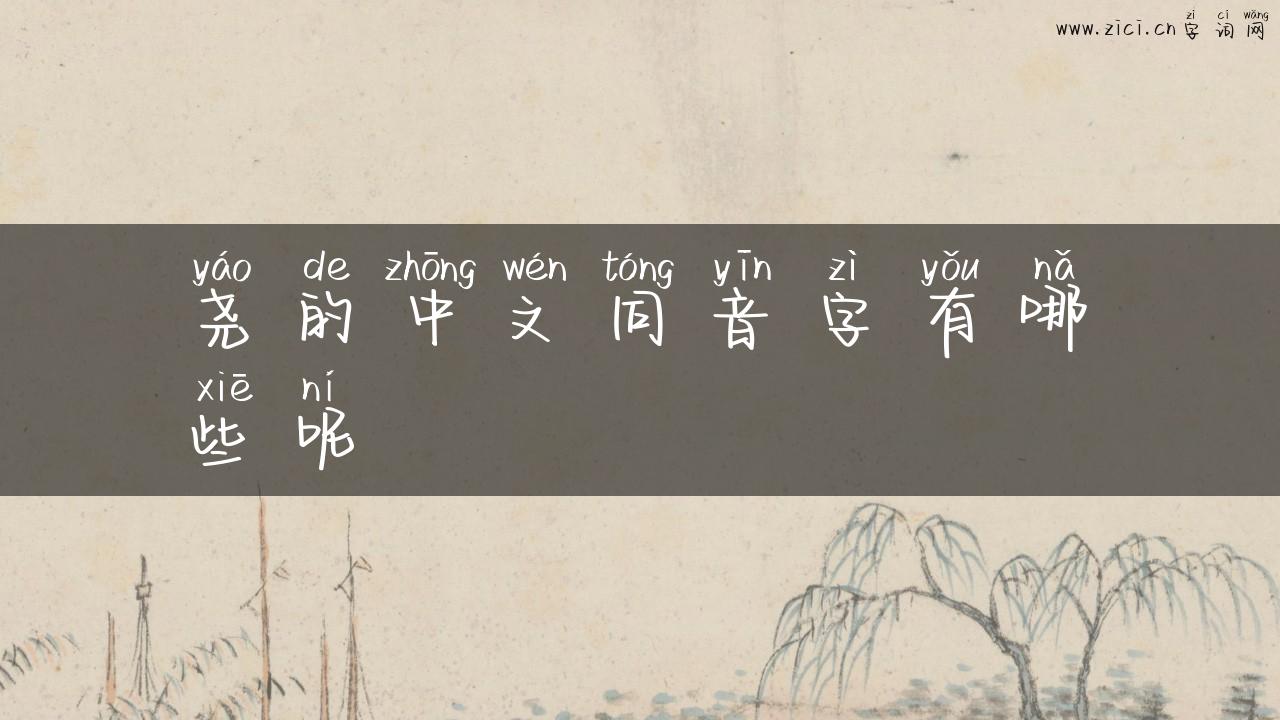 zì cí wǎng
www.zici.cn 字 词 网
yáo de zhōng wén tóng yīn zì yǒu nǎ
尧 的 中 文 同 音 字 有 哪
xiē ní
些 呢